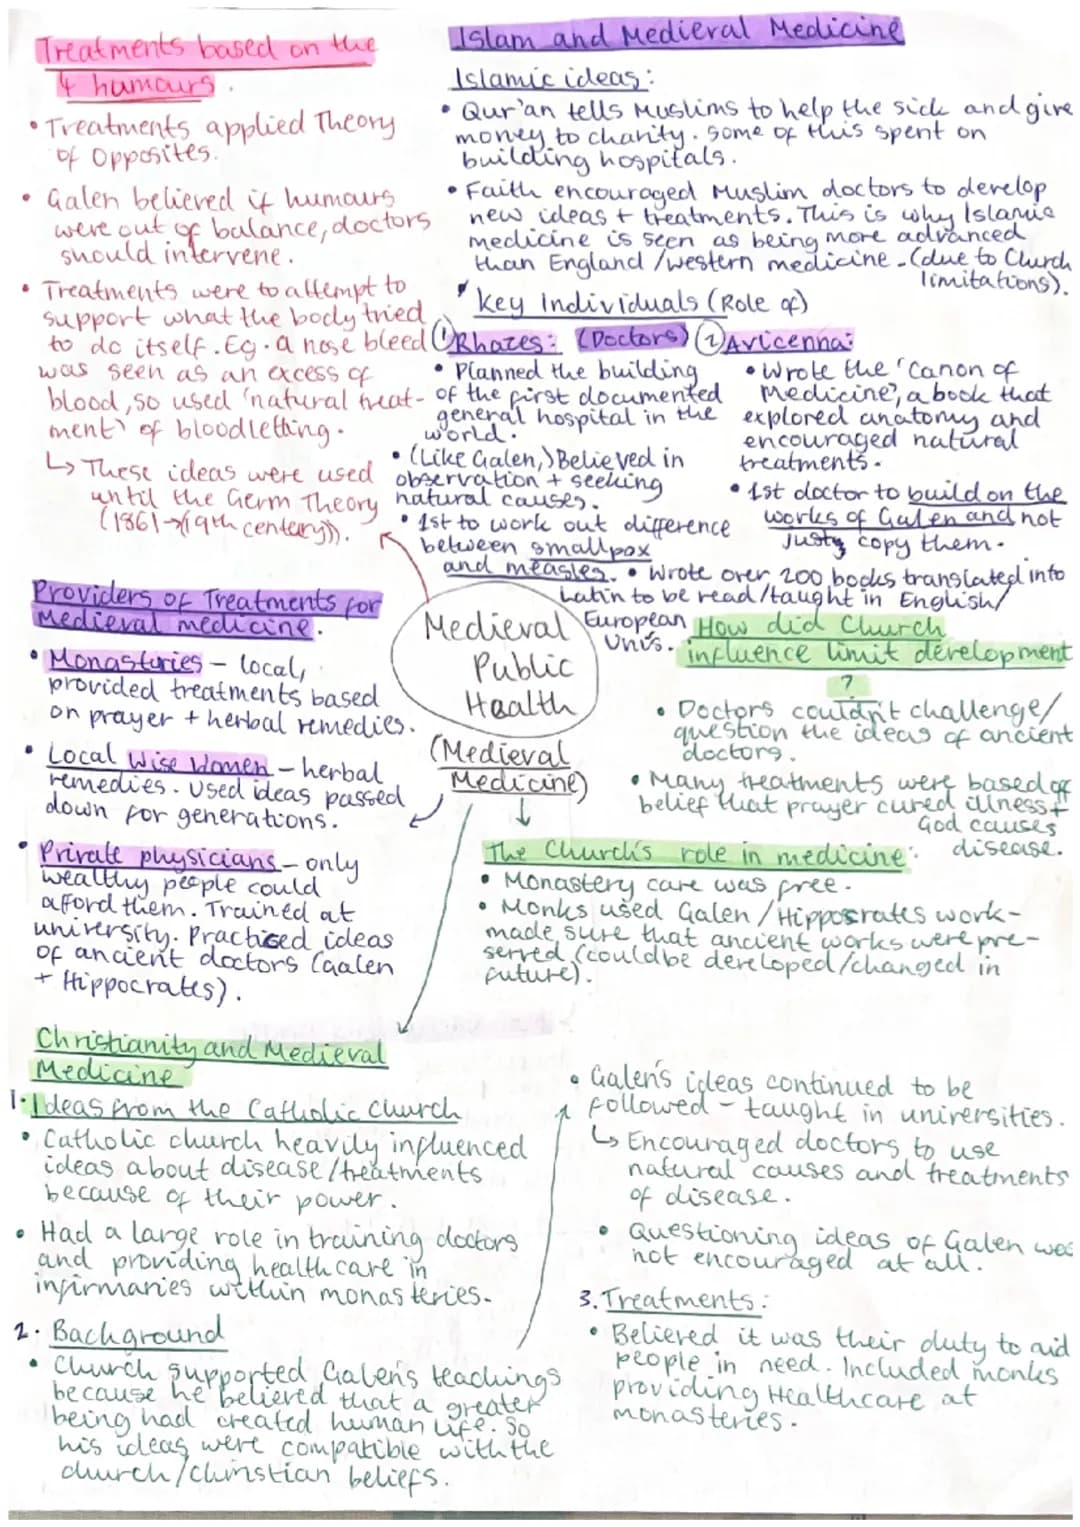 Treatments based on the
4 humours.
• Treatments applied Theory
of Opposites.
• Galen believed if humours
were out of balance, doctors
should intervene.
• Treatments were to attempt to
support what the body tried
to do itself. Eg. a nose bleed
was seen as an excess of
blood, so used 'natural treat-
ment' of bloodletting.
↳ These ideas were used
until the Germ Theory
(1861→(19th century)).
Islam and Medieval Medicine
Islamic ideas:
• Qur'an tells Muslims to help the sick and give
money to charity. Some of this spent on
building hospitals.
• Faith encouraged Muslim doctors to develop
new ideas + treatments. This is why Islamic
medicine is seen as being more advanced
than England/western medicine. (due to Church
limitations).
Key Individuals (Role of)
(Doctors)
① Rhazes:
• Planned the building
of the first documented
general hospital in the
world.
• (Like Galen,) Believed in
observation + seeking
natural causes.
• 1st to work out difference
between smallpox
and measles.
② Avicenna:
• Wrote the 'Canon of
Medicine', a book that
explored anatomy and
encouraged natural
treatments.
• 1st doctor to build on the
works of Galen and not
justy copy them.
• Wrote over 200 books translated into
Latin to be read/taught in English/
European
Uni's.
Medieval
Public
Health
(Medieval
Medicine)
Providers of Treatments for
Medieval medicine.
• Monasturies – local,
provided treatments based
on prayer + herbal remedies.
• Local Wise Women – herbal
remedies. Used ideas passed
down for generations.
• Private physicians – only
wealthy people could
aford them. Trained at
university. Practised ideas
of ancient doctors (Galen
+ Hippocrates).
How did Church
influence limit development
?
• Doctors couldn't challenge/
question the ideas of ancient
doctors.
• Many treatments were based of
belief that prayer cured illness +
God causes
disease.
The Church's role in medicine:
• Monastery care was free.
• Monks used Galen/Hipposrates work-
made sure that ancient works were pre-
served (could be developed/changed in
future).
Christianity and Medieval
Medicine
1. Ideas from the Catholic Church
• Catholic church heavily influenced
ideas about disease/treatments
because of their power.
• Had a large role in training doctors
and providing healthcare in
infirmaries within monasteries.
2. Background
• Church supported Galen's teachings
because he believed that a greater
being had created human life. So
his ideas were compatible with the
church/Christian beliefs.
• Galen's ideas continued to be
followed – taught in universities.
↳ Encouraged doctors to use
natural causes and treatments
of disease.
• Questioning ideas of Galen was
not encouraged at all.
3. Treatments:
• Believed it was their duty to aid
people in need. Included monks
providing Healthcare at
monasteries.